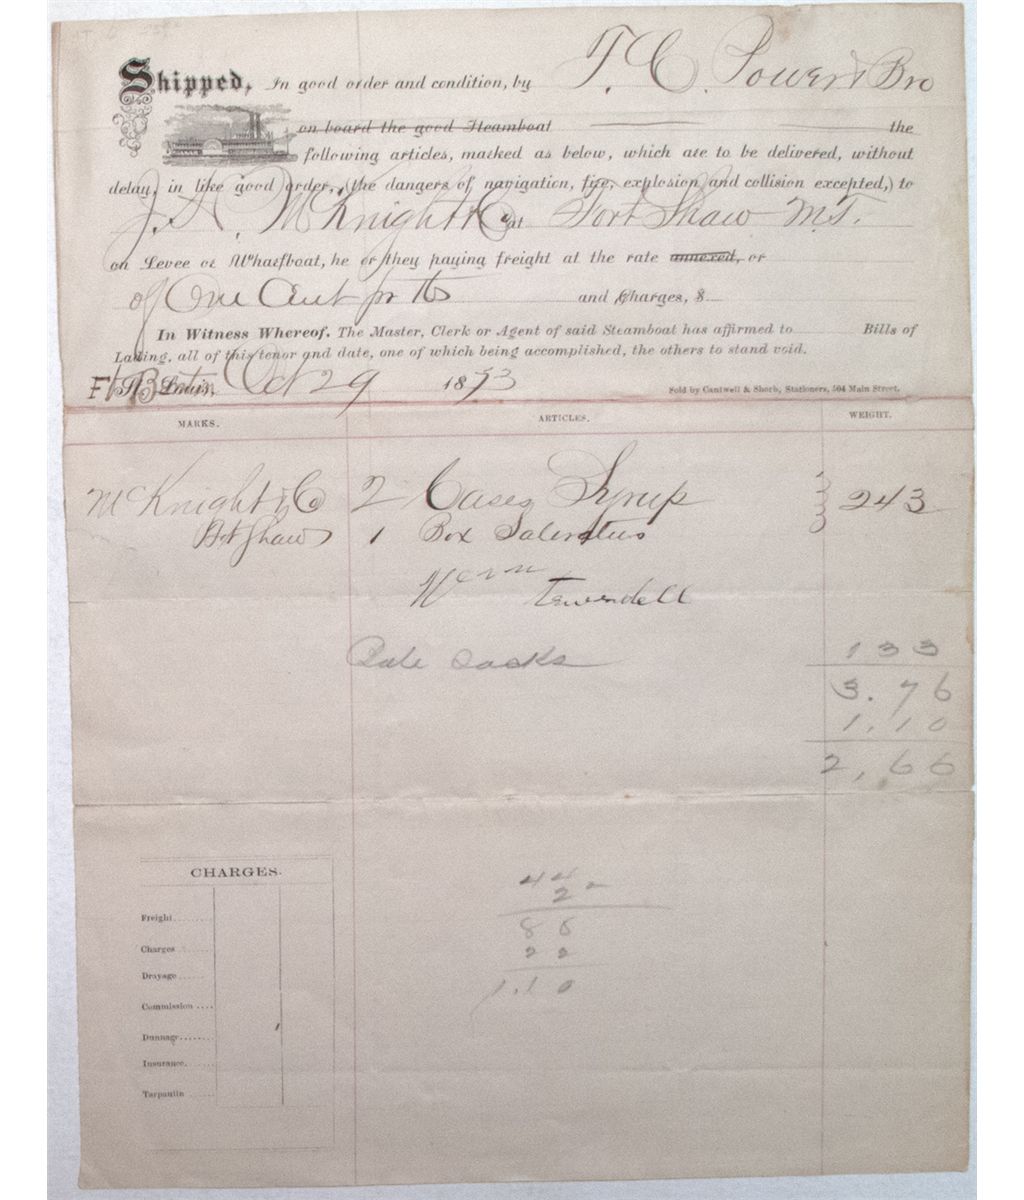 Shipped, In good order and condition, by T. C. Power & Bro
on board the good Steamboat the
following articles, marked as below, which are to be delivered, without
delay, in like good order, (the dangers of navigation, fire, explosion and collision excepted,) to
J. H. McKnight & Co at Fort Shaw M.T.
on Levee or Wharfboat, he or they paying freight at the rate annexed, or
of One Cent pr lb and Charges, $
In Witness Whereof. The Master, Clerk or Agent of said Steamboat has affirmed to Bills of
Lading, all of this tenor and date, one of which being accomplished, the others to stand void.
Ft Benton St. Louis, Oct 29 1873 Sold by Cantwell & Shorb, Stationers, 504 Main Street.
MARKS. ARTICLES. WEIGHT.
McKnight & Co 2 Cases Syrup 243
Ft Shaw 1 Box Saleratus
133
3.76
1.10
2,66
CHARGES.
Freight
Charges
Drayage
Commission
Dunnage
Insurance.
Tarpaulin
44
2
86
22
1.10